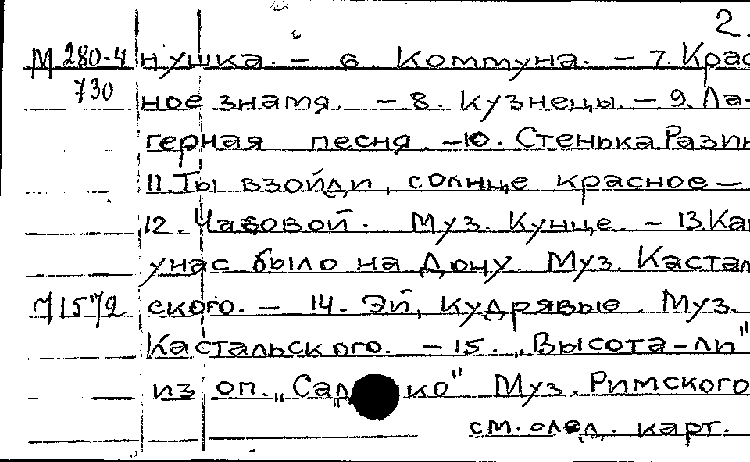 2.
М 280-4 нушка. - 6. Коммуна. - 7. Крас
730 ное знамя. - 8. Кузнецы. - 9. Ла-
герная песня - 10. Стенька Разин
11. Ты взойди, солнце красное -
12. Часовой. Муз. Кунце. - 13. Как
у нас было на Дону. Муз. Кастал
ского. - 14. Эй, кудрявые. Муз.
Кастальского. - 15. „Высота-ли"
из оп. „Сад ко" Муз. Римского
см. след. карт.